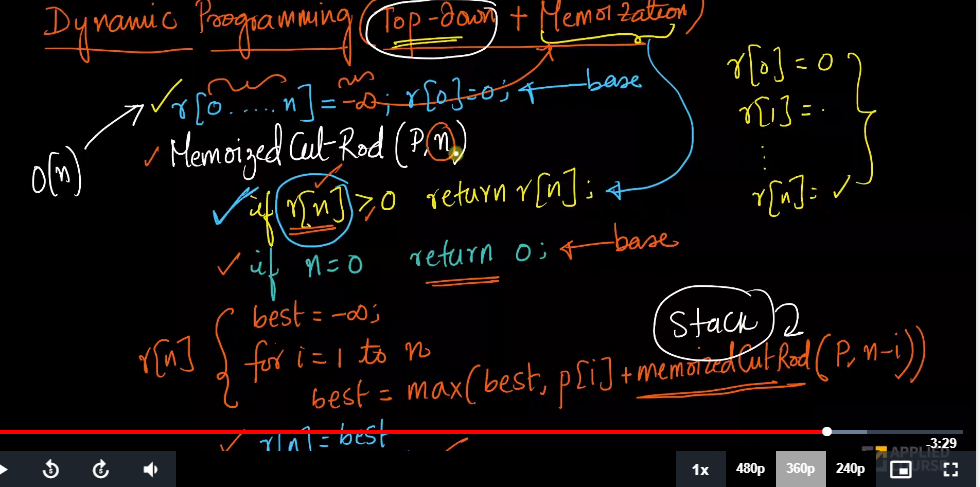 Dynamic Programming (Top-down + Memoization)
r[0.....n] = -∞; r[0]=0; ← base
O(n)
Memoized Cut-Rod (P, n)
if r[n] >0 return r[n];
if n=0 return 0; ← base
r[n] { best = -∞;
for i=1 to n
best = max(best, p[i] + memoizedCutRod(P, n-i))
r[n] = best
r[0] = 0
r[1] = .
⋮
r[n] = ✓
Stack
-3:29
APPLIED
COURSE
1x 480p 360p 240p